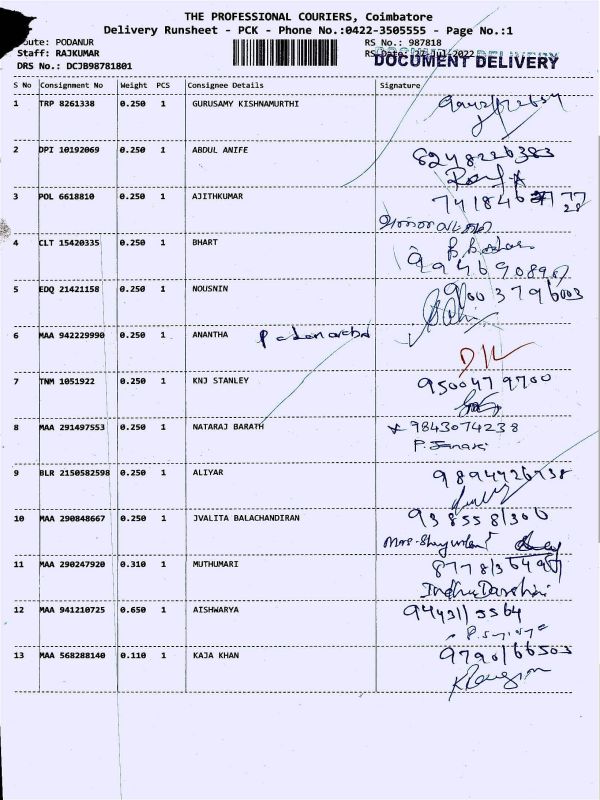 THE PROFESSIONAL COURIERS, Coimbatore
Delivery Runsheet - PCK - Phone No.:0422-3505555 - Page No.:1
Route: PODANUR RS No.: 987818
Staff: RAJKUMAR
DOCUMENT DELIVERY
DRS No.: DCJB98781801
S No Consignment No Weight PCS Consignee Details Signature
1 TRP 8261338 0.250 1 GURUSAMY KISHNAMURTHI
2 DPI 10192069 0.250 1 ABDUL ANIFE
8248226383
3 POL 6618810 0.250 1 AJITHKUMAR
4 CLT 15420335 0.250 1 BHART
5 EDQ 21421158 0.250 1 NOUSNIN
9003796003
6 MAA 942229990 0.250 1 ANANTHA
7 TNM 1051922 0.250 1 KNJ STANLEY
9500479700
8 MAA 291497553 0.250 1 NATARAJ BARATH
9843074238
P. Janaki
9 BLR 2150582598 0.250 1 ALIYAR
10 MAA 290848667 0.250 1 JVALITA BALACHANDIRAN
9385581306
11 MAA 290247920 0.310 1 MUTHUMARI
Indhu Darshini
12 MAA 941210725 0.650 1 AISHWARYA
13 MAA 568288140 0.110 1 KAJA KHAN
9790166503